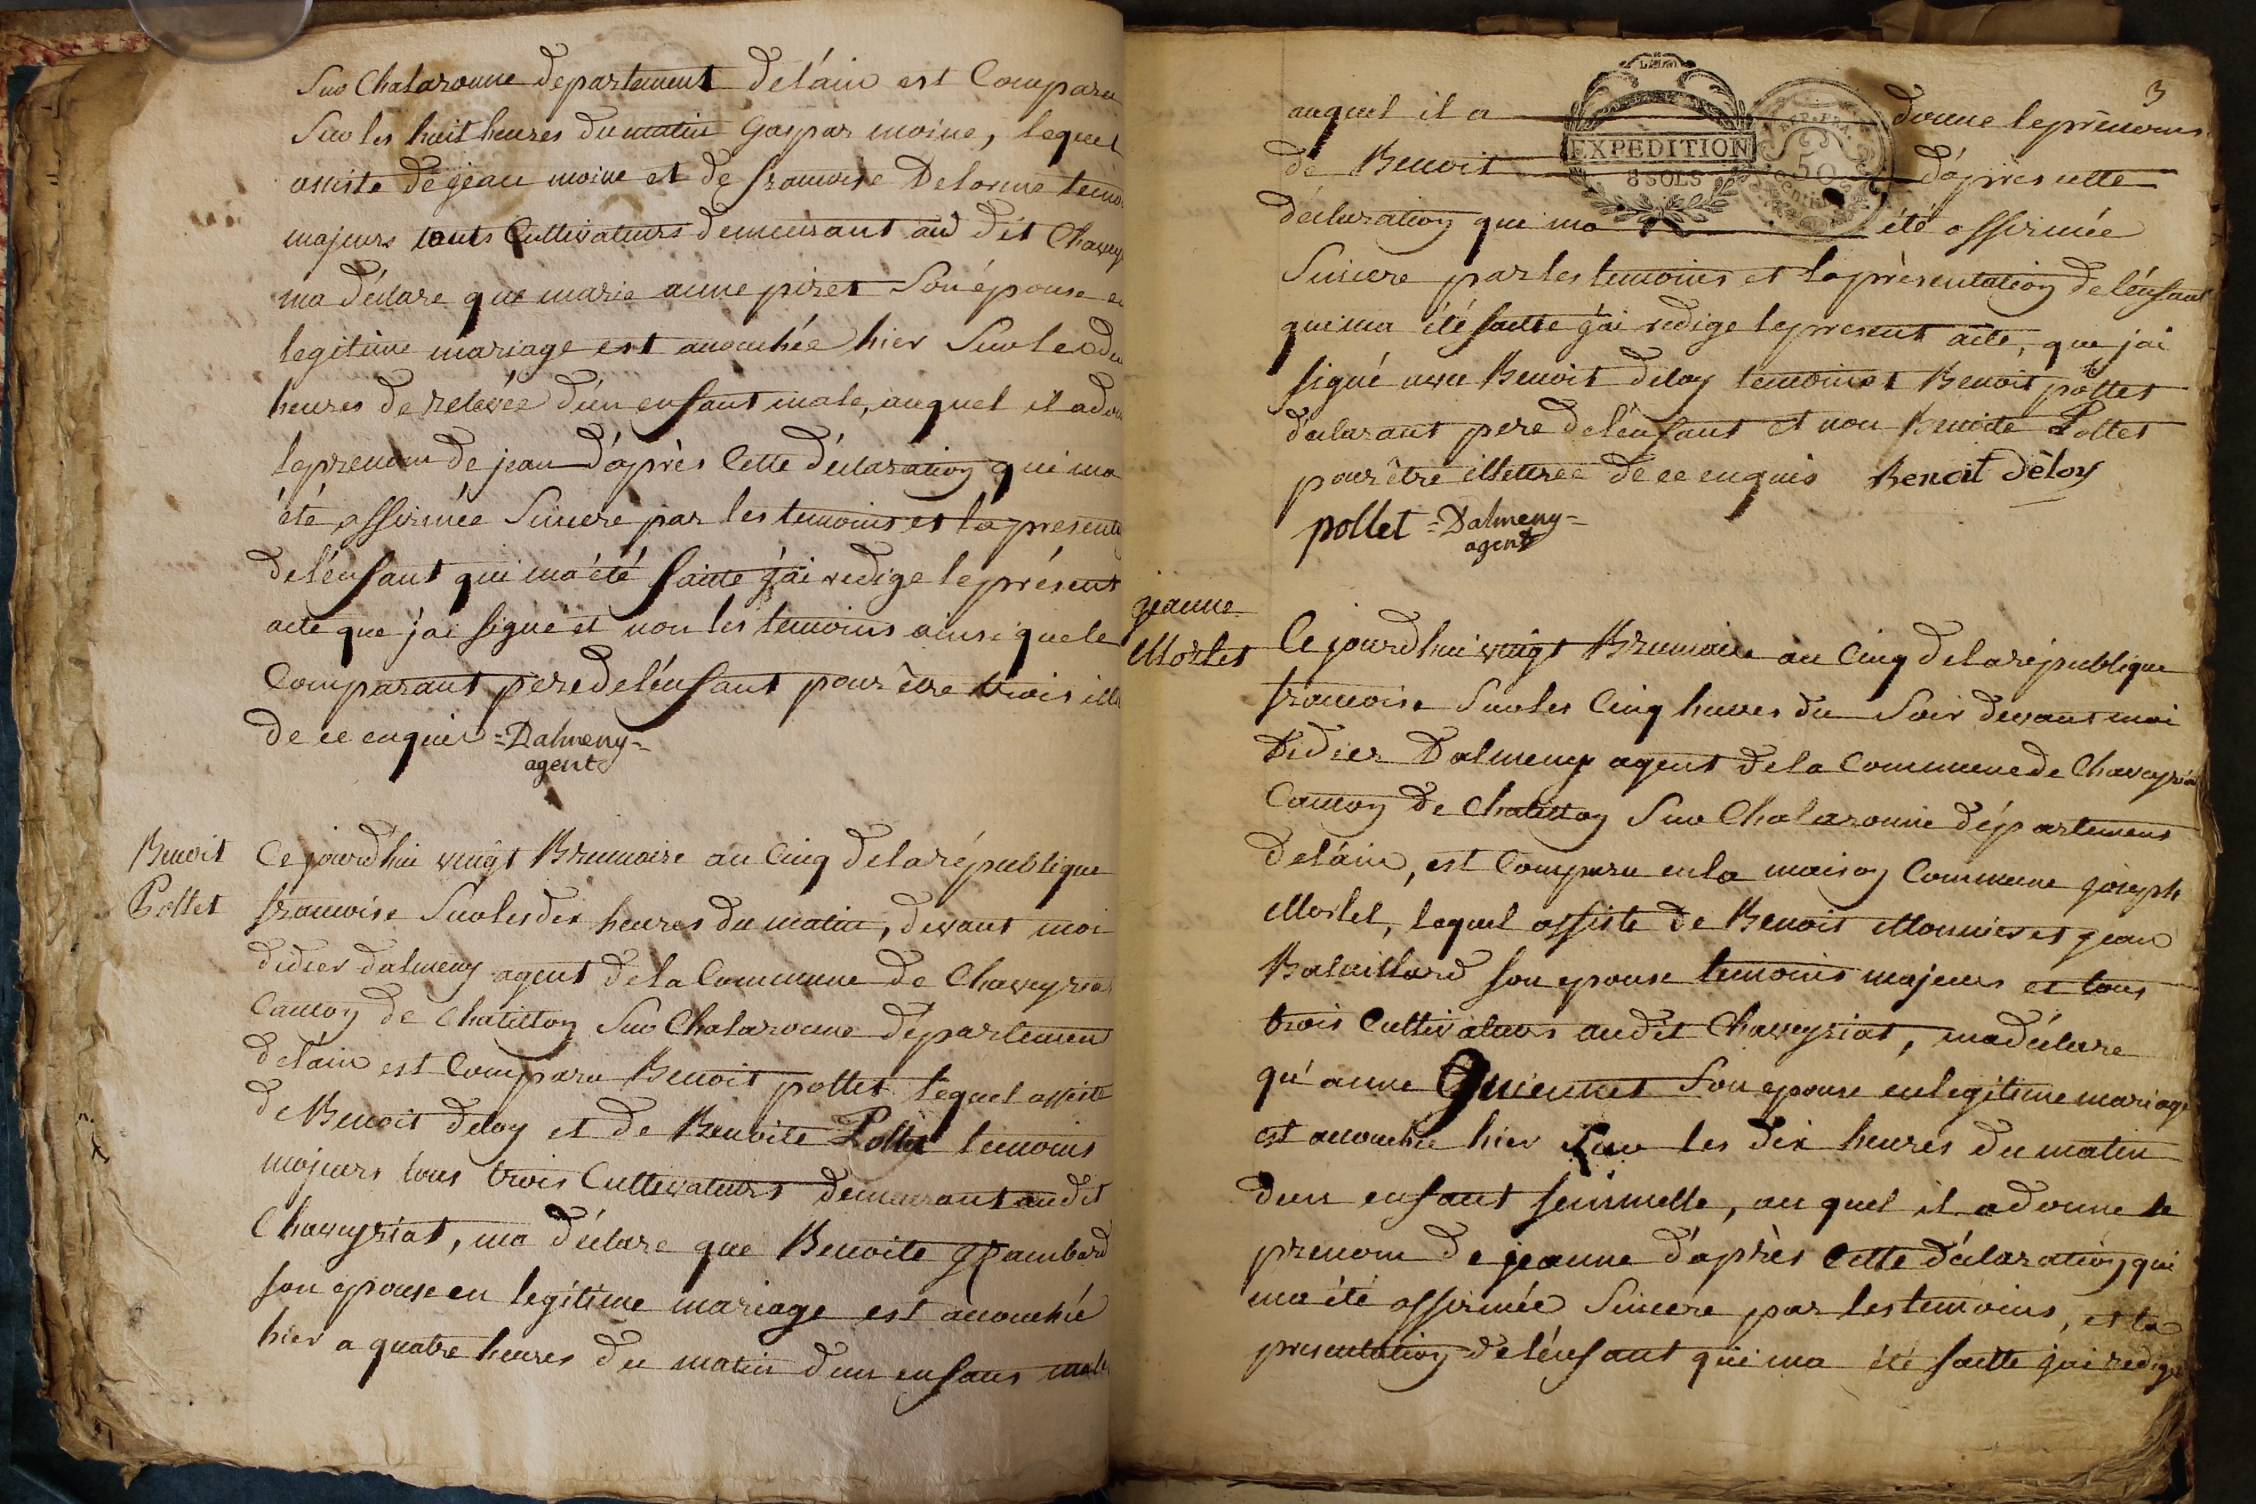 Sur Chalaronne departement de l'ain est Comparu
Sur les huit heures du matin Gaspar moine, lequel
assiste de jean moine et de francoise Delorme temo
majeurs touts Cultivateurs demeurant au dit Chavey
ma déclare que marie anne piret Son épouse e
legitime mariage est accouchée hier Sur les du
heures de relevée d'un enfant male, auquel il a don
le prenom de jean d'après Cette déclaration qui ma
été affirmée Sincere par les temoins et la presente
de l'enfant qui ma été faitte j'ai redige le présent
acte que j'ai signe et non les temoins ainsi que le
Comparant pere de l'énfant pour être trois ille
de ce enquis =Dalmeny=
agent
Benoit
Pollet
Ce jourd'hui vingt Brumaire an Cinq de la république
francoise Sur les dix heures du matin, devant moi
didier dalmeny agent de la Commune de Chaveyria
Canton de Chatillon Sur Chalaronne departemen
de l'ain est Comparu Benoit pollet lequel assiste
de Benoit deloy et de Benoite Pollet temoins
majeurs tous trois Cultivateurs demeurant audit
Chaveyriat, ma déclare que Benoite gzambard
son epouse en legitime mariage est accouchée
hier a quatre heures du matin d'un enfant male
3
L
EXPEDITION
8 SOLS
REP. FRA.
50
centimes
auquel il a donne le prénoms
de Benoit d'après cette
déclaration qui ma été affirmée
Sincere par les temoins et la présentation de l'énfant
qui ma été faitte j'ai redige le present acte, que j'ai
signé avec Benoit deloy temoin et Benoit pollet
déclarant pere de l'enfant et non Benoite Pollet
pour être illettrée de ce enquis Benoit Dèloy
pollet =Dalmeny=
agent
jeanne
Morlet
Ce jourd'hui vingt Brumaire an Cinq de la république
francoise Sur les Cinq heures du Soir devant moi
Didier Dalmeny agent de la Commune de Chaveyria
Canton de Chatillon Sur Chalaronne département
de l'ain, est Comparu en la maison Commune joseph
Morlet, lequel assiste de Benoit Monnier et jean
Bataillard son epouse temoins majeurs et tous
trois Cultivateurs audit Chaveyriat, ma déclare
qu'anne Guiennet Son epouse en legitime mariage
est accouchée hier Sur les dix heures du matin
d'un enfant feimmelle, au quel il a donne le
prenom de jeanne d'après Cette déclaration qui
ma été affirmée Sincere par les temoins, et la
présentation de l'énfant qui ma été faitte j'ai redige